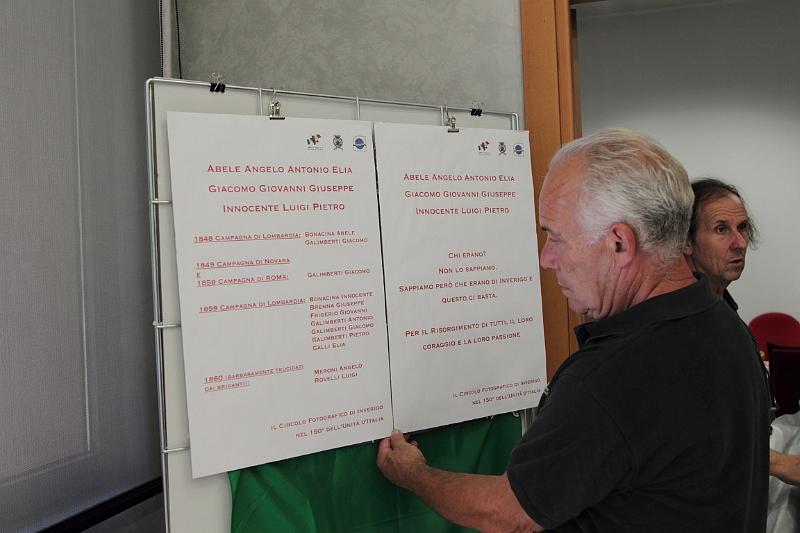 ABELE ANGELO ANTONIO ELIA
GIACOMO GIOVANNI GIUSEPPE
INNOCENTE LUIGI PIETRO
1848 CAMPAGNA DI LOMBARDIA: BONACINA ABELE
GALIMBERTI GIACOMO
1849 CAMPAGNA DI NOVARA
E
1859 CAMPAGNA DI ROMA: GALIMBERTI GIACOMO
1859 CAMPAGNA DI LOMBARDIA: BONACINA INNOCENTE
BRENNA GIUSEPPE
FRIGERIO GIOVANNI
GALIMBERTI ANTONIO
GALIMBERTI GIACOMO
GALIMBERTI PIETRO
GALLI ELIA
1860 (BARBARAMENTE TRUCIDATI MERONI ANGELO
DAI BRIGANTI!) ROVELLI LUIGI
IL CIRCOLO FOTOGRAFICO DI INVERIGO
NEL 150° DELL'UNITÀ D'ITALIA
ABELE ANGELO ANTONIO ELIA
GIACOMO GIOVANNI GIUSEPPE
INNOCENTE LUIGI PIETRO
CHI ERANO?
NON LO SAPPIAMO.
SAPPIAMO PERÒ CHE ERANO DI INVERIGO E
QUESTO CI BASTA.
PER IL RISORGIMENTO DI TUTTI, IL LORO
CORAGGIO E LA LORO PASSIONE
IL CIRCOLO FOTOGRAFICO DI INVERIGO
NEL 150° DELL'UNITÀ D'ITALIA